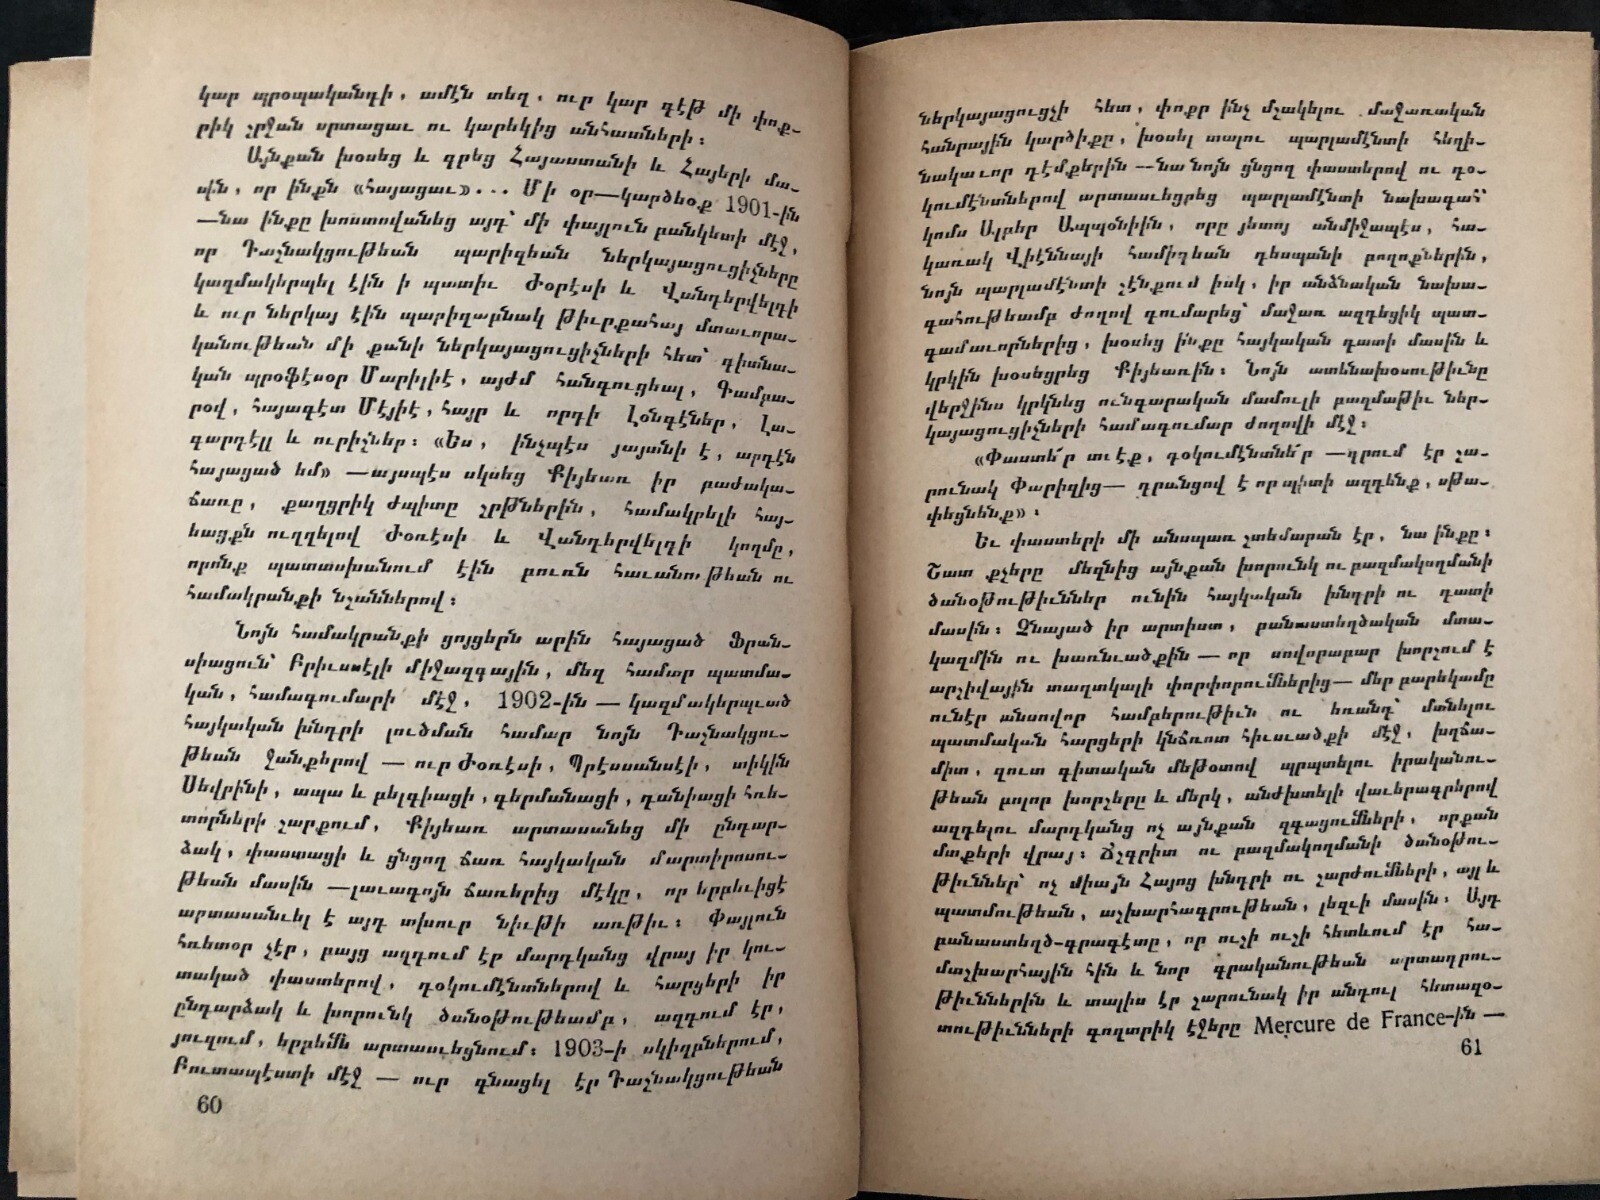 կար պրօպականդի, ամէն տեղ, ուր կար գէթ մի փոք-
րիկ շրջան սրտացաւ ու կարեկից անհատների։
Այնքան խօսեց և գրեց Հայաստանի և Հայերի մա-
սին, որ ինքն «հայացաւ»... Մի օր—կարծեօք 1901-ին
—նա ինքը խոստովանեց այդ՝ մի փայլուն բանկետի մէջ,
որ Դաշնակցութեան պարիզեան ներկայացուցիչները
կազմակերպել էին ի պատիւ Ժօրէսի և Վանդերվելդի
և ուր ներկայ էին պարիզաբնակ թիւրքահայ մտաւորա-
կանութեան մի քանի ներկայացուցիչների հետ՝ գիտնա-
կան պրոֆէսօր Մարիլիէ, այժմ հանգուցեալ, Գամբա-
րօվ, հայագէտ Մէյիէ, հայր և որդի Լօնգէներ, Լա-
գարդէլլ և ուրիշներ։ «Ես, ինչպէս յայտնի է, արդէն
հայացած եմ» —այսպէս սկսեց Քիյեառ իր բաժակա-
ճառը, քաղցրիկ ժպիտը շրթներին, համակրելի հայ-
եացքն ուղղելով Ժօռէսի և Վանդերվելդի կողմը,
որոնք պատասխանում էին բուռն հաւանութեան ու
համակրանքի նշաններով։
Նոյն համակրանքի ցոյցերն արին հայացած Ֆրան-
սիացուն՝ Բրիւսսէլի միջազգային, մեզ համար պատմա-
կան, համագումարի մէջ, 1902-ին — կազմակերպւած
հայկական խնդրի լուծման համար նոյն Դաշնակցու-
թեան ջանքերով — ուր Ժօռէսի, Պրէսսանսէի, տիկին
Սեվրինի, ապա և բելգիացի, գերմանացի, դանիացի հռե-
տորների շարքում, Քիյեառ արտասանեց մի ընդար-
ձակ, փաստացի և ցնցող ճառ հայկական մարտիրոսու-
թեան մասին —լաւագոյն ճառերից մէկը, որ երբեւիցէ
արտասանւել է այդ տխուր նիւթի առթիւ։ Փայլուն
հռետօր չէր, բայց ազդում էր մարդկանց վրայ իր կու-
տակած փաստերով, դօկումէնտներով և հարցերի իր
ընդարձակ և խորունկ ծանօթութեամբ, ազդում էր,
յուզում, երբեմն արտասւեցնում։ 1903-ի սկիզբներում,
Բուտապէստի մէջ — ուր գնացել էր Դաշնակցութեան
60
ներկայացուցչի հետ, փոքր ինչ մշակելու մաջառական
հանրային կարծիքը, խօսել տալու պարլամէնտի հեղի-
նակաւոր դէմքերին —նա նոյն ցնցող փաստերով ու դօ-
կումէնտներով արտասւեցրեց պարլամէնտի նախագահ՝
կոմս Ալբեր Ապպօնիին, որը յետոյ անմիջապէս, հա-
կառակ Վիէննայի համիդեան դեսպանի բողոքներին,
նոյն պարլամէնտի շէնքում իսկ, իր անձնական նախա-
գահութեամբ ժողով գումարեց՝ մաջառ ազդեցիկ պատ-
գամաւորներից, խօսեց ինքը հայկական դատի մասին և
կրկին խօսեցրեց Քիյեառին։ Նոյն ատենախօսութիւնը
վերջինս կրկնեց ունգարական մամուլի բազմաթիւ ներ-
կայացուցիչների համագումար ժողովի մէջ։
«Փաստե՛ր տւէք, դօկումէնտնե՛ր —գրում էր շա-
րունակ Փարիզից— դրանցով է որ պիտի ազդենք, սթա-
փեցնենք»։
Եւ փաստերի մի անսպառ շտեմարան էր, նա ինքը։
Շատ քչերը մեզնից այնքան խորունկ ու բազմակողմանի
ծանօթութիւններ ունին հայկական խնդրի ու դատի
մասին։ Չնայած իր արտիստ, բանաստեղծական մտա-
կազմին ու խառնւածքին — որ սովորաբար խորշում է
արշիվային տաղտկալի փորփորումներից— մեր բարեկամը
ունէր անսովոր համբերութիւն ու եռանդ՝ մտնելու
պատմական հարցերի կնճռոտ հիւսւածքի մէջ, խղճա-
միտ, զուտ գիտական մեթօտով պրպտելու իրականու-
թեան բոլոր խորշերը և մերկ, անժխտելի վաւերագրերով
ազդելու մարդկանց ոչ այնքան զգացումների, որքան
մտքերի վրայ։ Ճշգրիտ ու բազմակողմանի ծանօթու-
թիւններ՝ ոչ միայն Հայոց խնդրի ու շարժումների, այլ և
պատմութեան, աշխարհագրութեան, լեզւի մասին։ Այդ
բանաստեղծ-գրագէտը, որ ուշի ուշի հետևում էր հա-
մաշխարհային հին և նոր գրականութեան արտադրու-
թիւններին և տալիս էր շարունակ իր անդուլ հետազօ-
տութիւնների գողտրիկ էջերը Mercure de France-ին —
61